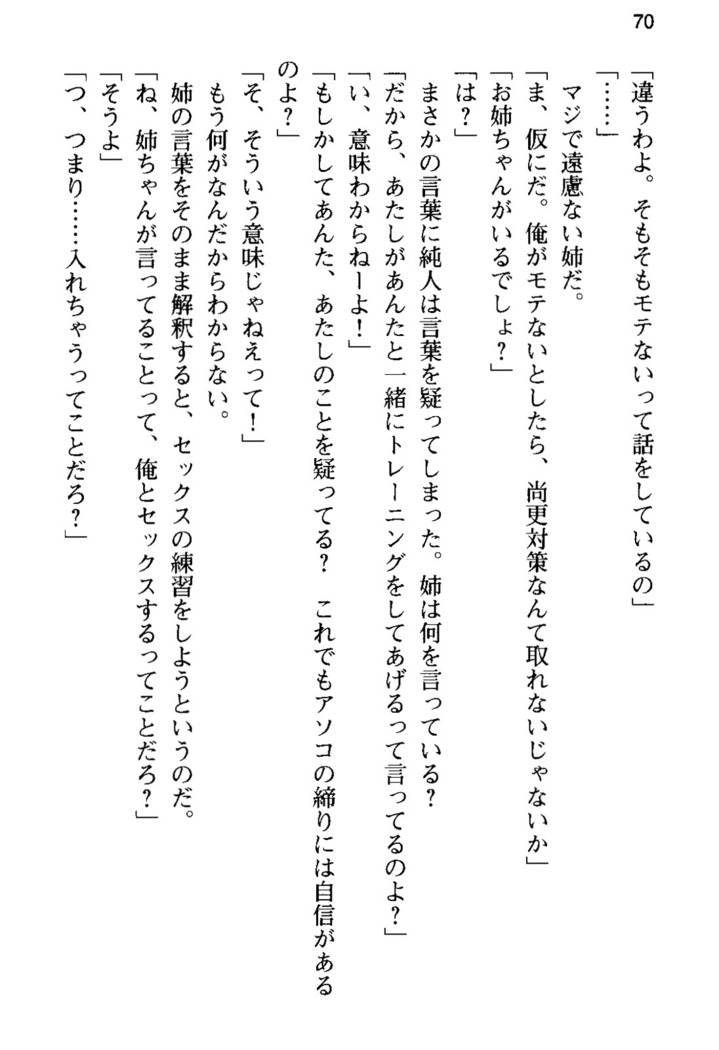 70
「違うわよ。そもそもモテないって話をしているの」
「……」
マジで遠慮ない姉だ。
「ま、仮にだ。俺がモテないとしたら、尚更対策なんて取れないじゃないか」
「お姉ちゃんがいるでしょ？」
「は？」
まさかの言葉に純人は言葉を疑ってしまった。姉は何を言っている？
「だから、あたしがあんたと一緒にトレーニングをしてあげるって言ってるのよ？」
「い、意味わからねーよ！」
「もしかしてあんた、あたしのことを疑ってる？　これでもアソコの締りには自信がある
のよ？」
「そ、そういう意味じゃねえって！」
もう何がなんだからわからない。
姉の言葉をそのまま解釈すると、セックスの練習をしようというのだ。
「ね、姉ちゃんが言ってることって、俺とセックスするってことだろ？」
「そうよ」
「つ、つまり……入れちゃうってことだろ？」